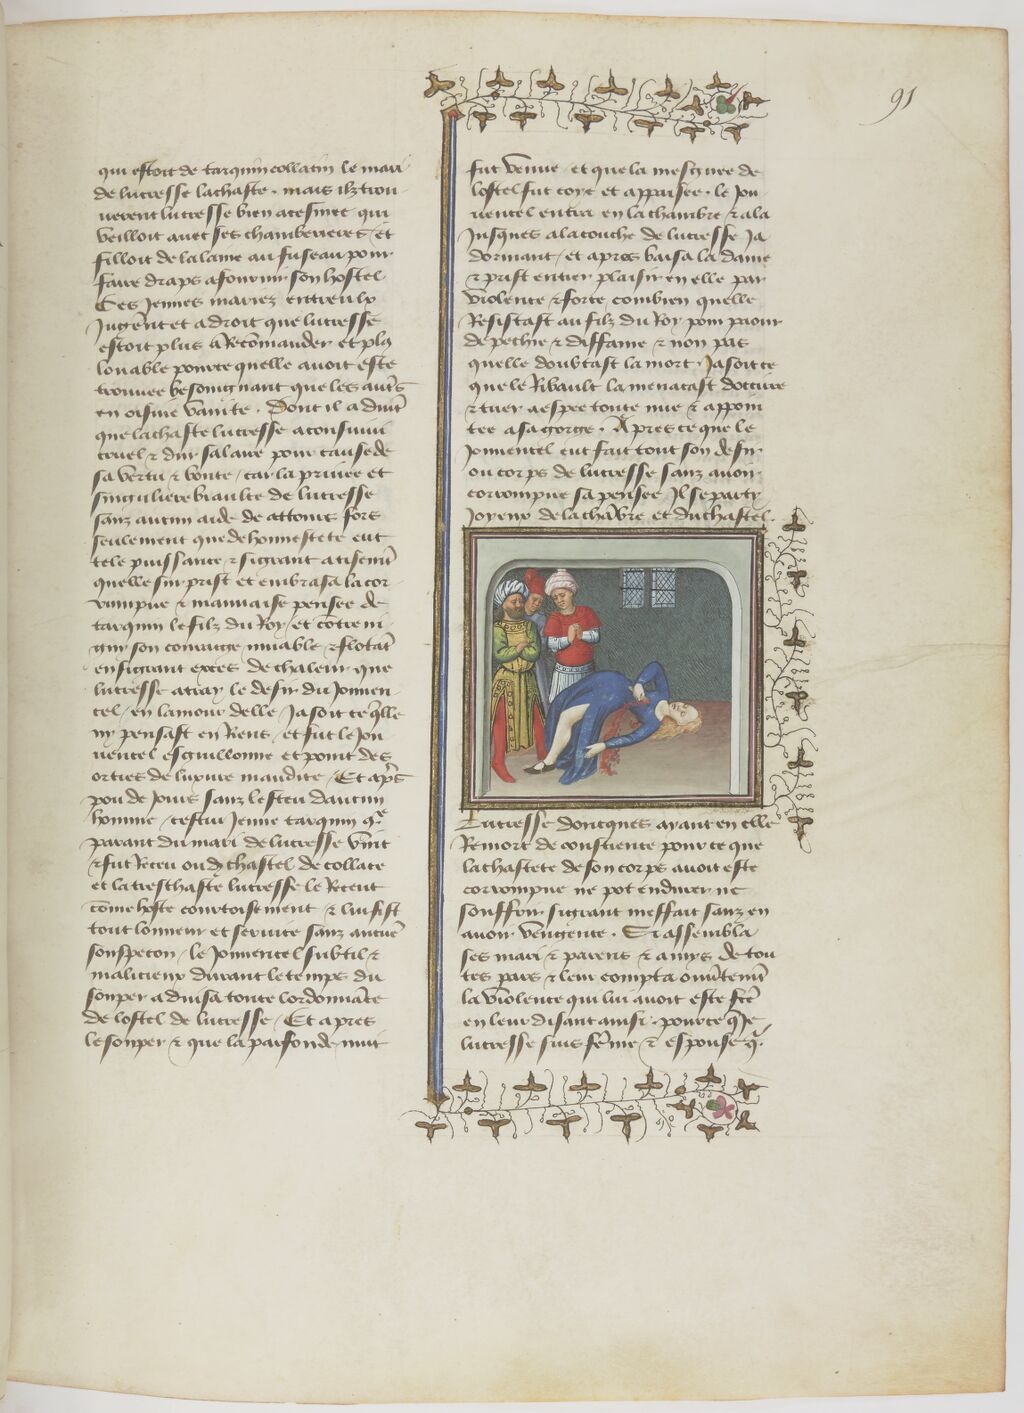 91
qui estoit de tarquin collatin le mari
de lucresse la chaste. mais ilz trou-
uerent lucresse bien acesmee qui
veilloit auec ses chamberieres et
filloit de la laine au fuseau pour
faire draps a fournir son hostel
Ces jennes mariez entreulx
jugerent et a droit que lucresse
estoit plus a recomander et plus
louable pource quelle auoit este
trouuee besoingnant que les autres
en oisiue vanite. Dont il aduint
que la chaste lucresse aconsuiui
cruel & dur salaire pour cause de
sa vertu & bonte / car la priuee et
singuliere beaulte de lucresse
sanz aucun aide de attours fors
seulement que de honnestete eut
tele puissance & si grant atisement
quelle surprist et embrasa la cor-
rumpue & mauuaise pensee de
tarquin le filz du Roy / et
son couraige muable & flotant
en si grant exces de chaleur que
lucresse atray le desir du jouuen-
cel / en lamour delle / ja soit ce quelle
ny pensast en Riens / et fut le jou-
uencel esguillonne et point des
orties de luxure maudite / Et apres
pou de jours sanz le sceu daucun
homme / cestui jenne tarquin
parant du mari de lucresse vint
& fut Receu ou chastel de collace
et la treschaste lucresse le Receut
come hoste courtoisement & lui fist
tout lonneur et seruice sanz aucune
souspecon / le jouuencel subtil &
malicieux durant le temps du
souper aduisa toute lordonnance
de lostel de lucresse / Et apres
le souper & que la parfonde nuit
fut venue et que la mesgnee de
lostel fut coye et appaisee. le jou
uencel entra en la chambre & ala
jusques a la couche de lucresse ja
dormant / et apres baisa la dame
& prist entier plaisir en elle par
violence & force combien quelle
Resistast au filz du Roy pour paour
de pechie & diffame & non pas
quelle doubtast la mort. ja soit ce
que le Ribault la menacast doccire
& tuer a espee toute nue & appoin
tee a sa gorge. Apres ce que le
jouuencel eut fait tout son desir
ou corps de lucresse sanz auoir
corrompue sa pensee Il se party
joyeux de la chambre et du chastel.
Lucresse doncques ayant en elle
Remort de conscience pour ce que
la chastete de son corps auoit este
corrompue ne pot endurer ne
souffrir si grant meffait sanz en
auoir vengence. Si assembla
ses mari & parens & amys de tou
tes pars & leur compta
la violence qui lui auoit este fete
en leur disant ainsi. pource que je
lucresse suis feme & espouse